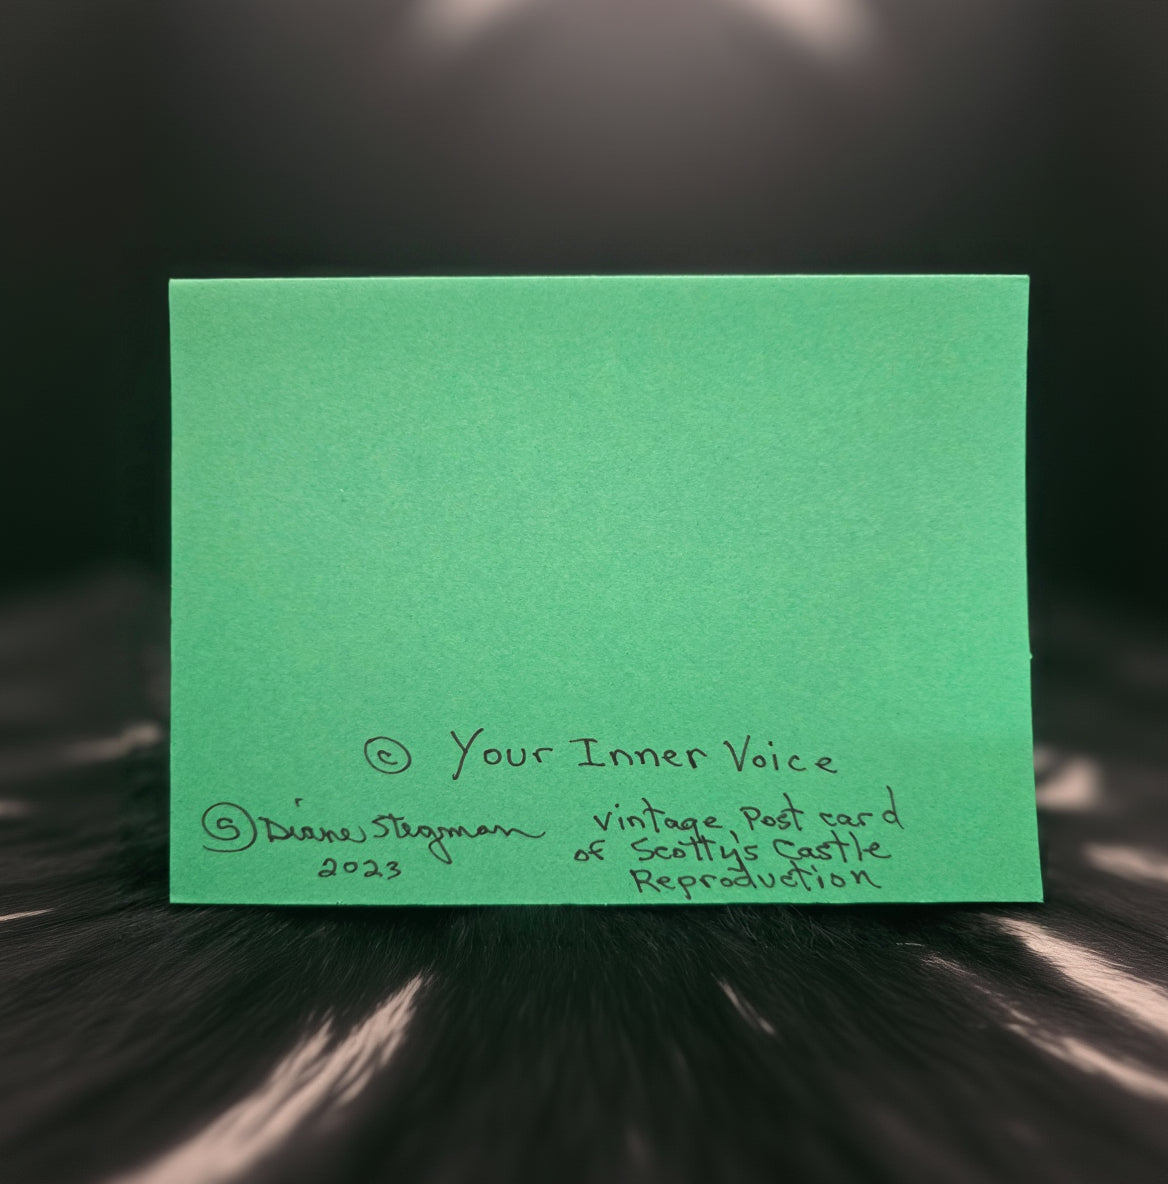 © Your Inner Voice
Ⓢ Diane Stegman
2023
vintage Post card
of Scotty's Castle
Reproduction